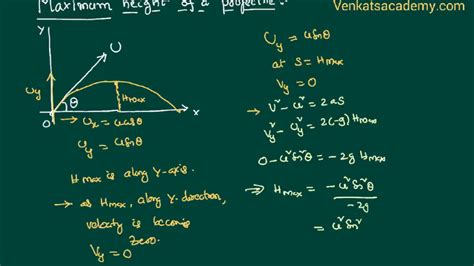 Venkatsacademy.com
Maximum height of a projectile:
Y
U
Uy
θ
Hmax
O
x
→ Ux = ucosθ
Uy = usinθ
Hmax is along Y-axis.
→ as Hmax, along Y-direction,
velocity is becomes
zero.
Vy = 0
Uy = usinθ
at S = Hmax
Vy = 0
→ V² - u² = 2as
Vy² - Uy² = 2(-g) Hmax
0 - u² sin²θ = -2g Hmax
⇒ Hmax = -u² sin²θ / -2g
= u² sin²